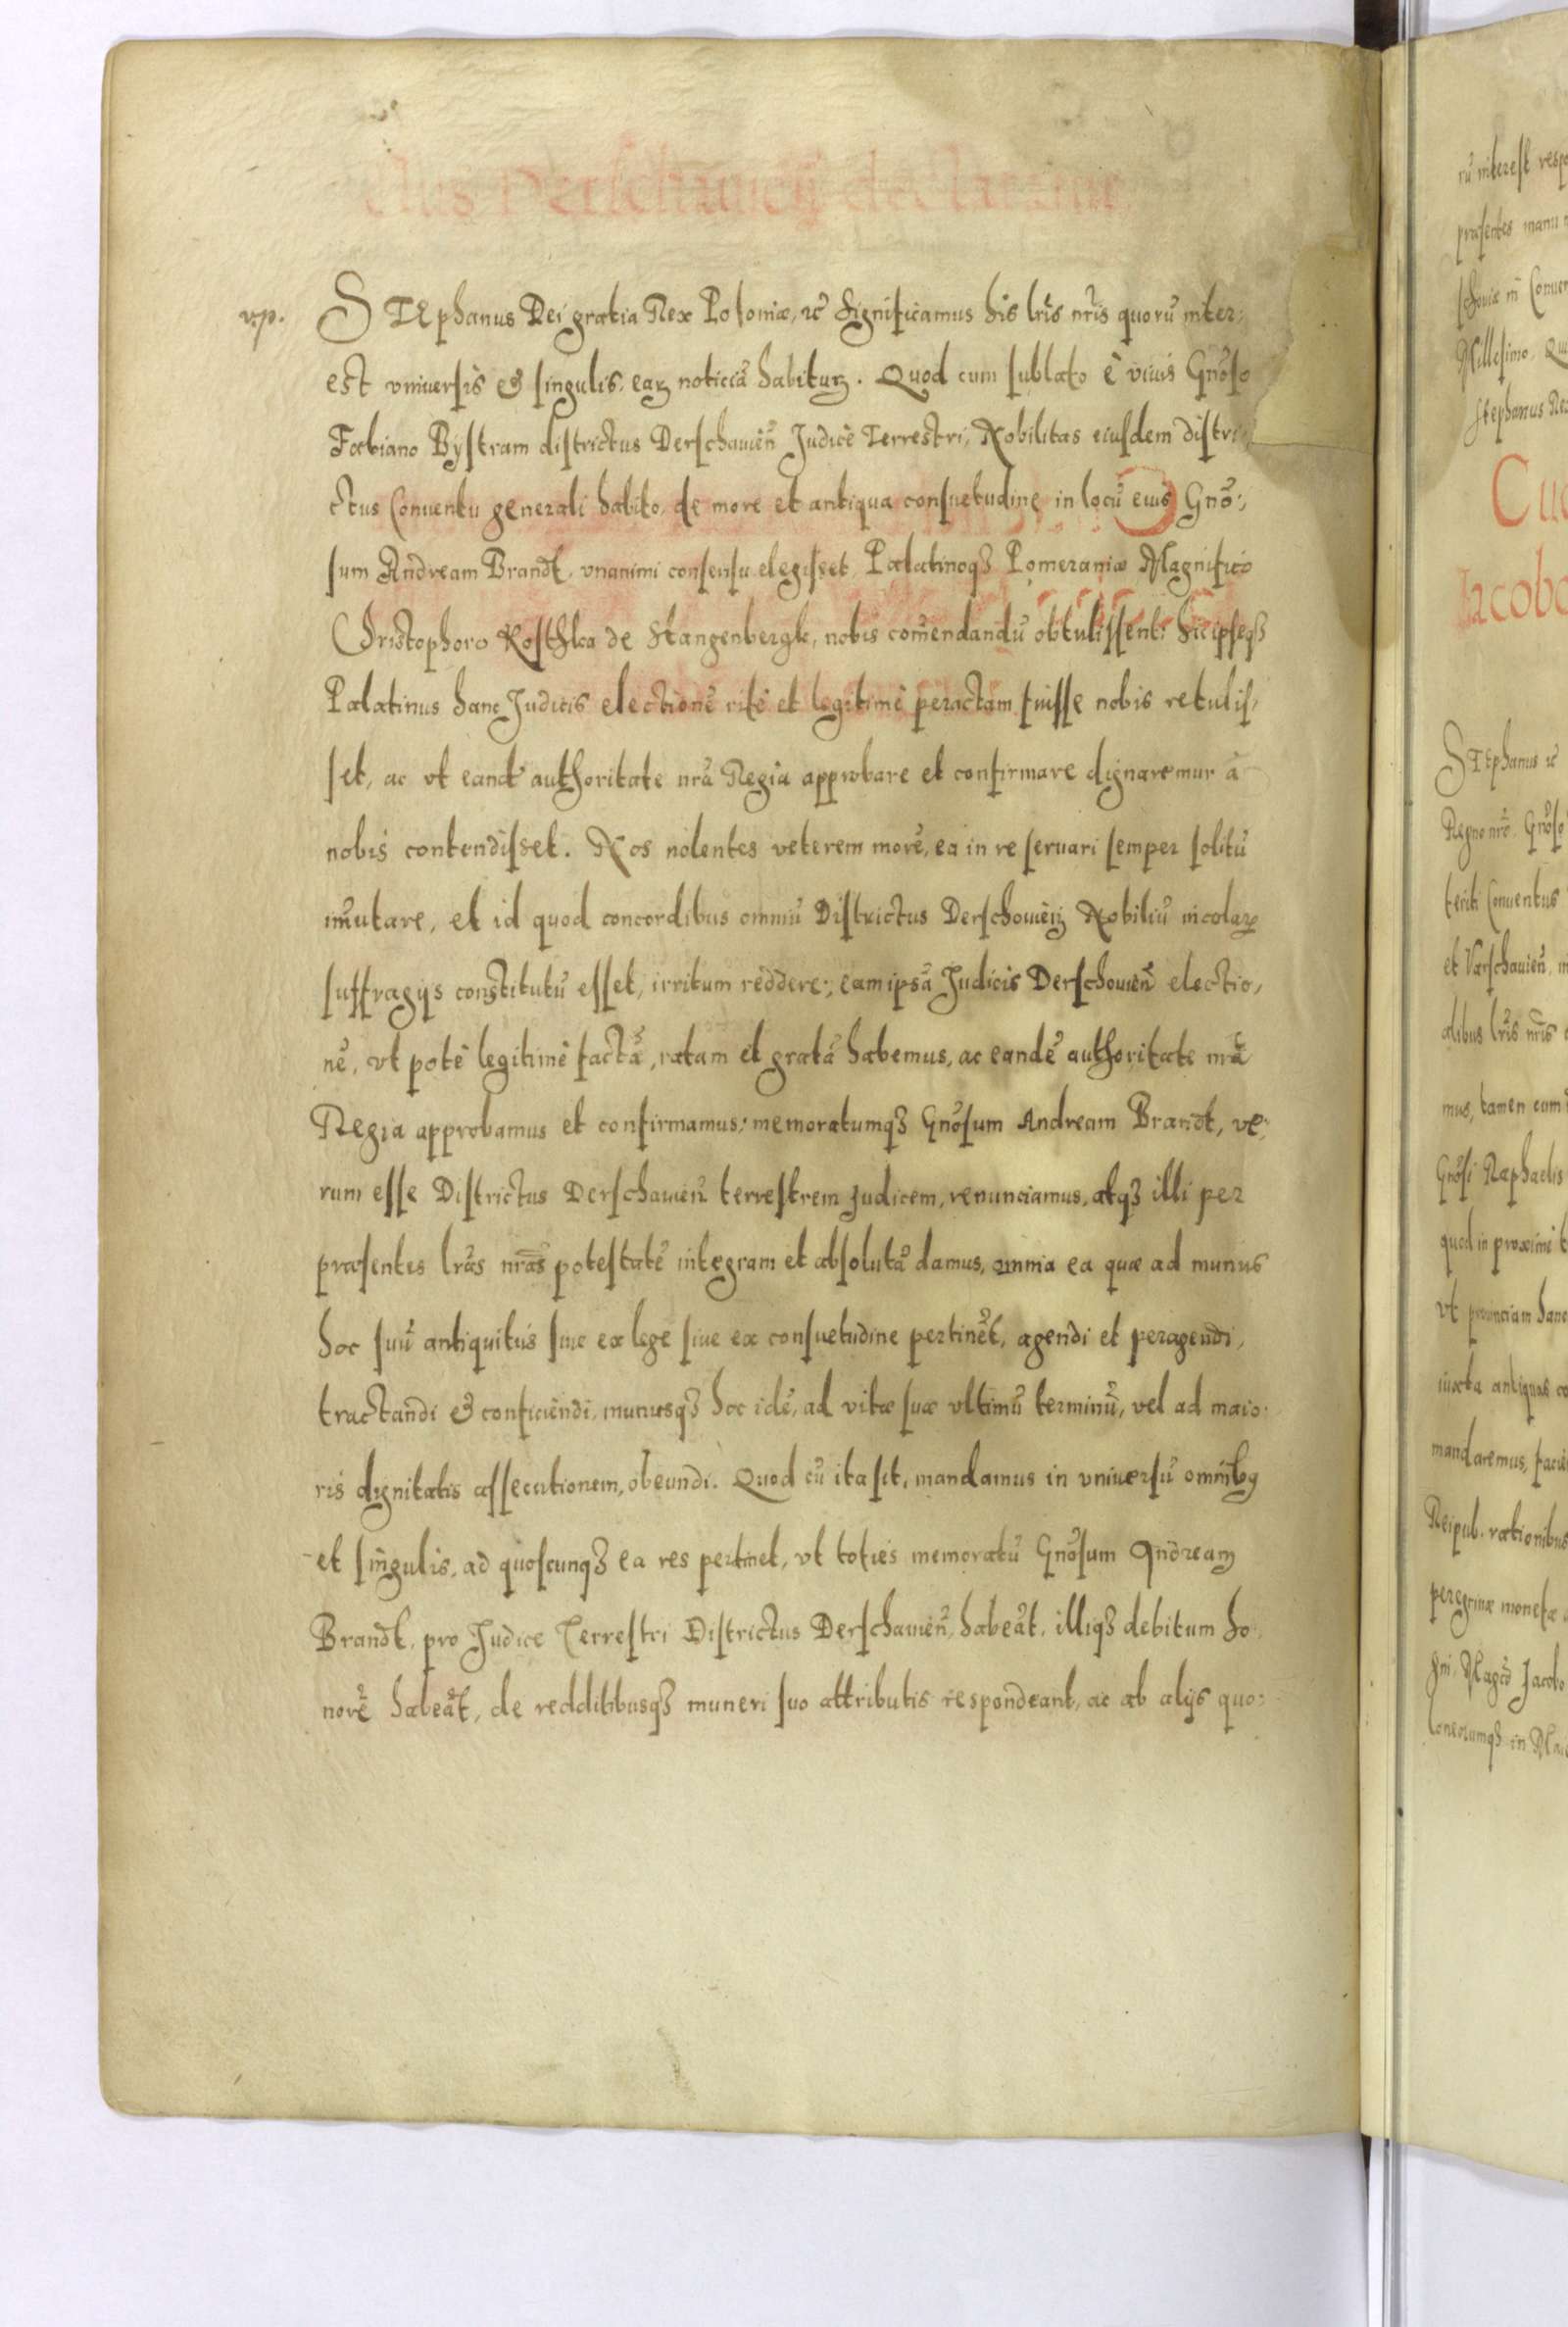 ctus Derschauien̄ declaratur.
v.p.
STEphanus Dei gratia Rex Poloniæ, &c̄ Significamus his lr̄is nr̄is quorū inter:
est vniuersis & singulis, eaꝝ noticiā habituꝝ. Quod cum sublato è viuis Gn̄oso
Fabiano Bystram districtus Derschauien̄ Judicè Terrestri, Nobilitas eiusdem distri
ctus Conuentu generali habito, de more et antiqua consuetudine in locū eius Gn̄o:
sum Andream Brandt, vnanimi consensu elegisset, Palatinoqꝫ Pomeraniæ Magnifico
Christophoro Kosthka de Stangenbergk, nobis com̄endandū obtulissent: hicipseqꝫ
Palatinus hanc Judicis electionē ritè et legitimè peractam fuisse nobis retulis,
set, ac vt eandē authoritate nr̄a Regia approbare et confirmare dignaremur à
nobis contendisset. Nos nolentes veterem morē, ea in re seruari semper solitū
im̄utare, et id quod concordibus omniū Districtus Derschouien̄ Nobiliū incolaꝝ
suffragijs constitutū esset, irritum reddere; eam ipsā Judicis Derschouien̄ electio,
nē, vt potè legitimè factā, ratam et gratā habemus, ac eandē authoritate nr̄a
Regia approbamus et confirmamus; memoratumqꝫ Gn̄osum Andream Brandt, ve:
rum esse Districtus Derschauien̄ terrestrem Judicem, renunciamus, atqꝫ illi per
præsentes lr̄as nr̄as potestatē integram et absolutā damus, omnia ea quæ ad munus
hoc suū antiquitus siue ex lege siue ex consuetudine pertinēt, agendi et peragendi,
tractandi & conficiendi, munusqꝫ hoc idē, ad vitæ suæ vltimū terminū, vel ad maio:
ris dignitatis assecutionem, obeundi. Quod cū ita sit, mandamus in vniuersū omnibꝰ
et singulis, ad quoscunqꝫ ea res pertinet, vt toties memoratū Gn̄osum Andream
Brandt, pro Judice Terrestri Districtus Derschauien̄, habeāt, illiqꝫ debitum ho
norē habeāt, de redditibusqꝫ muneri suo attributis respondeant, ac ab alijs quo:
rū interest
præsentes manu
Millesimo
Stephanus
Jacobo
STEphanus &c̄
Regno nr̄o Gn̄oso
Conuentus
et Varschauien̄
lr̄is nr̄is
mus, tamen cum
Gn̄osi Raphaelis
quod in proximè
vt prouinciam hanc
iuxta antiquas
mandaremus,
Reipub. rationibus
peregrinæ monetæ
Jacobo
in